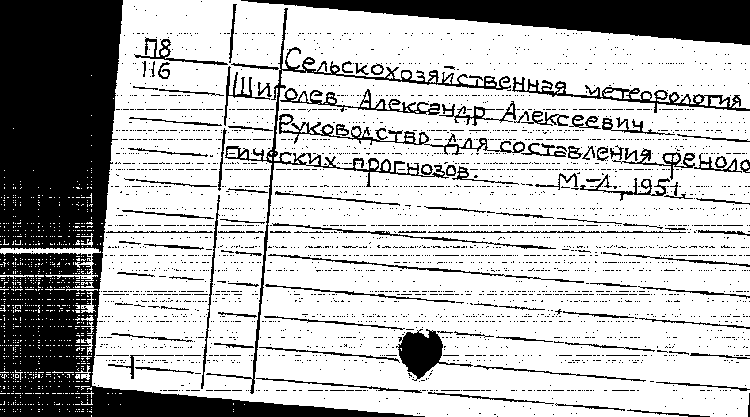 П8
116
Сельскохозяйственная метеорология
Шиголев, Александр Алексеевич.
Руководство для составления феноло
гических прогнозов. М.-Л., 1951.